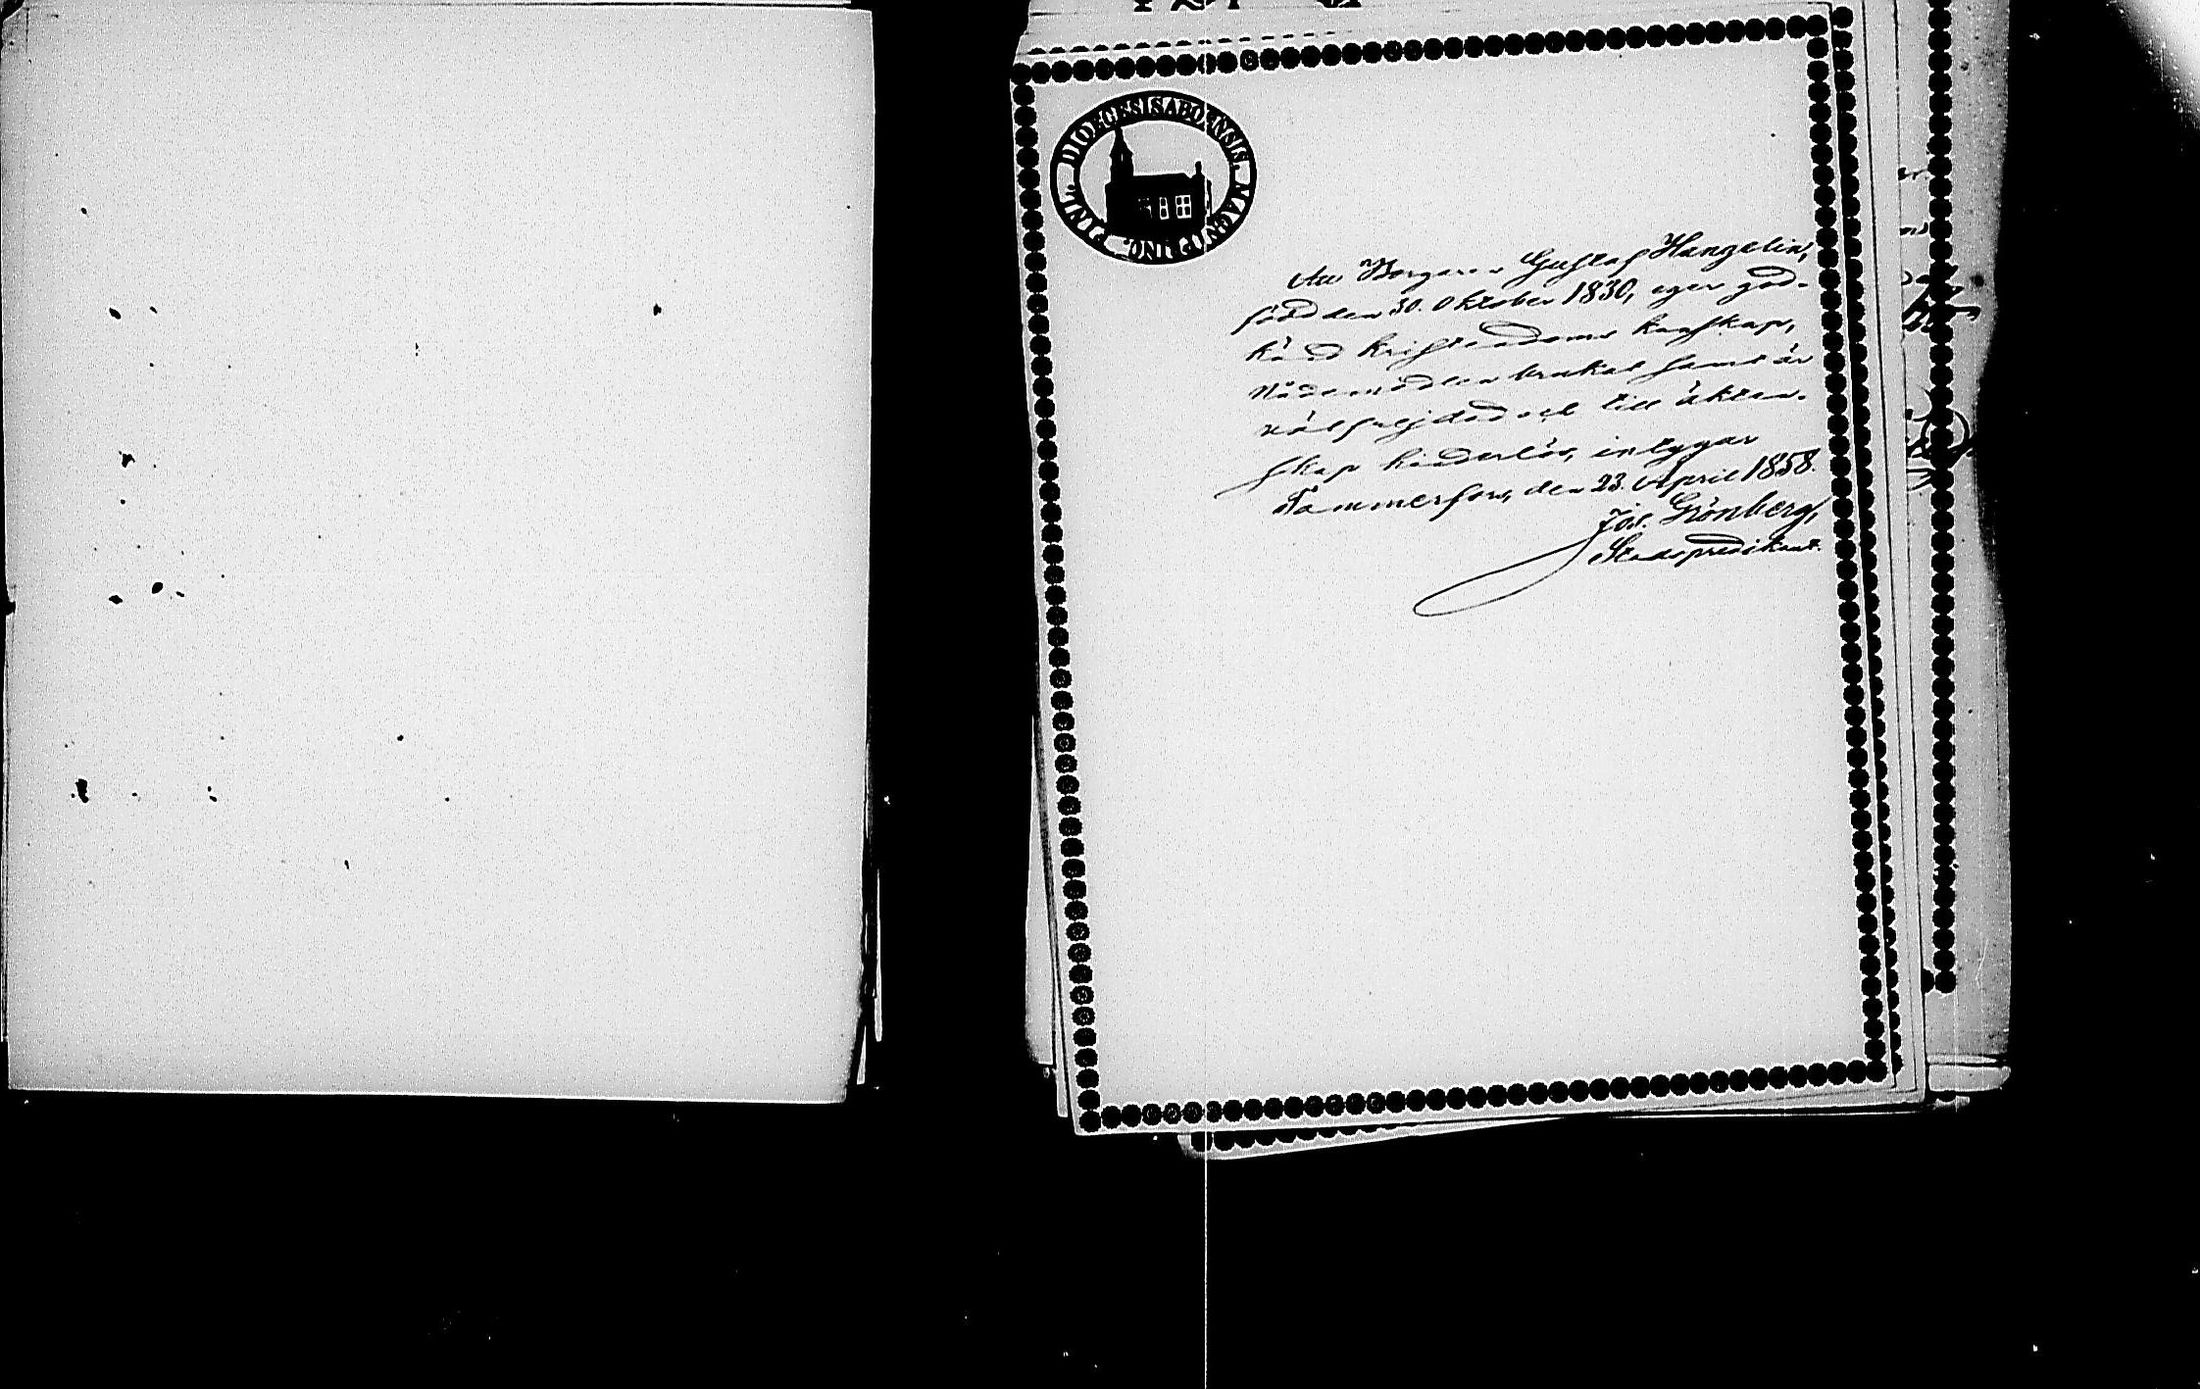 DIOECESIS ABOENSIS. MAGNI PRINC. FINL.
Att Borgaren Gustaf Hangelin,
född den 30. Oktober 1830, eger god-
känd kristendoms kunskap,
Nådemedlen brukat samt är
välfrejdad och till äkten-
skap hinderlös, intygar
Tammerfors, den 23. April 1858.
Jos. Grönberg,
Stadspredikant.